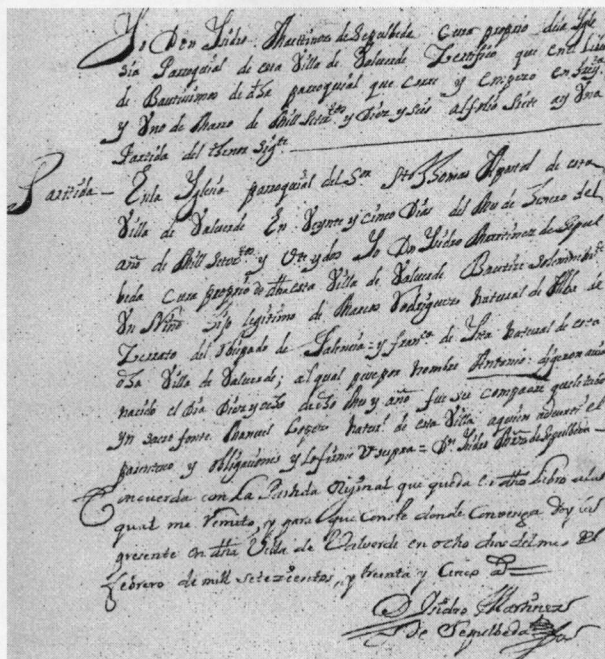 Yo Don Ysidro Martinez de Sepulbeda cura proprio dela Ygle
sia Parroquial de esta Villa de Valverde Zertifico que en el Libro
de Bautissmos de dha parroquial que corre y empezo en
y Uno de Marzo de Mill Setezos y Diez y seis al folio Siete ay Una
Partida del thenor sigte
Partida — En la Yglesia parroquial del Sor Sto Thomas Apostol de esta
Villa de Valverde En Veynte y cinco Dias del Mes de Henero del
año de Mill Setezos y Vte y dos Yo Dn Ysidro Martinez de Sepul
beda cura proprio de dha esta Villa de Valverde Bautize Solemnemte
Un Niño hijo legitimo de Marcos Rodriguez Natural de Alba de
Zerrato del Obispado de Palencia = y Franca de Yta Natural de esta
dha Villa de Valverde; al qual puse por nombre Antonio: digeron avia
nacido el dia Diez y ocho de dho Mes y año fue su compadre que le tubo
yn sacro fonte Manuel Lopez Natural de esta Villa aquien adverti el
parentesco y obligaciones y lo firmé Ut supra = Dn Ysidro Mrnz de Sepulbeda —
Concuerda con La Partida Orijinal que queda en dho Libro ala
qual me remito, y para que Conste donde Convenga Doy la
presente en dha Villa de Valverde en ocho dias del mes de
febrero de mill setezientos, y treinta y Cinco
Dn Isidro Martinez
de Sepulbeda